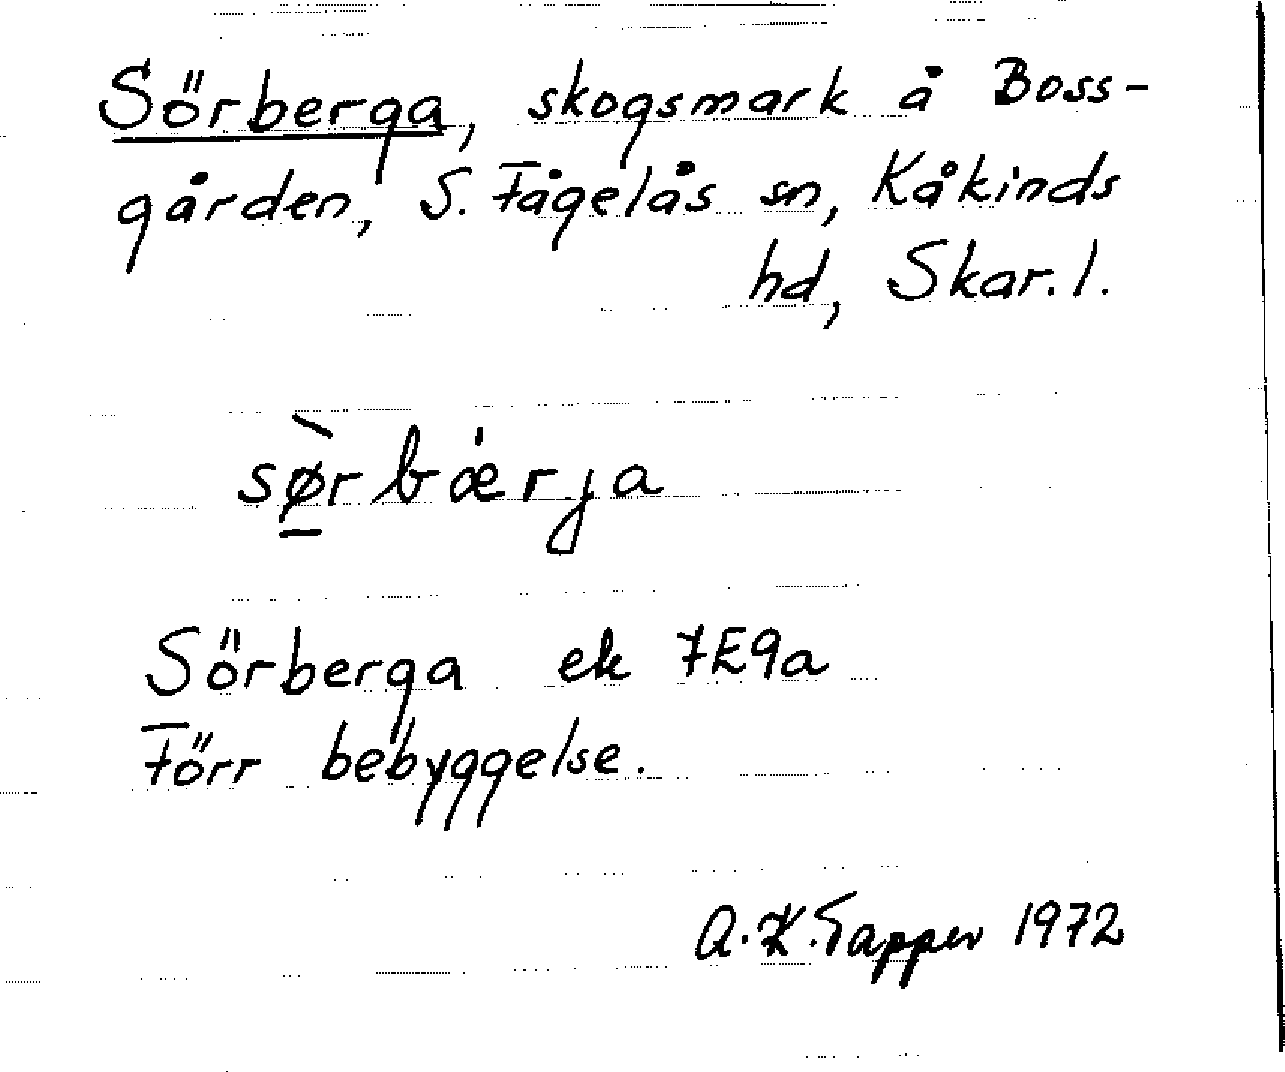 Sörberga, skogsmark å Boss-
gården, S. Fågelås sn, Kåkinds
hd, Skar. l.
sø̀rbæ̍rja
Sörberga ek 7E9a
Förr bebyggelse.
A.K. Tapper 1972